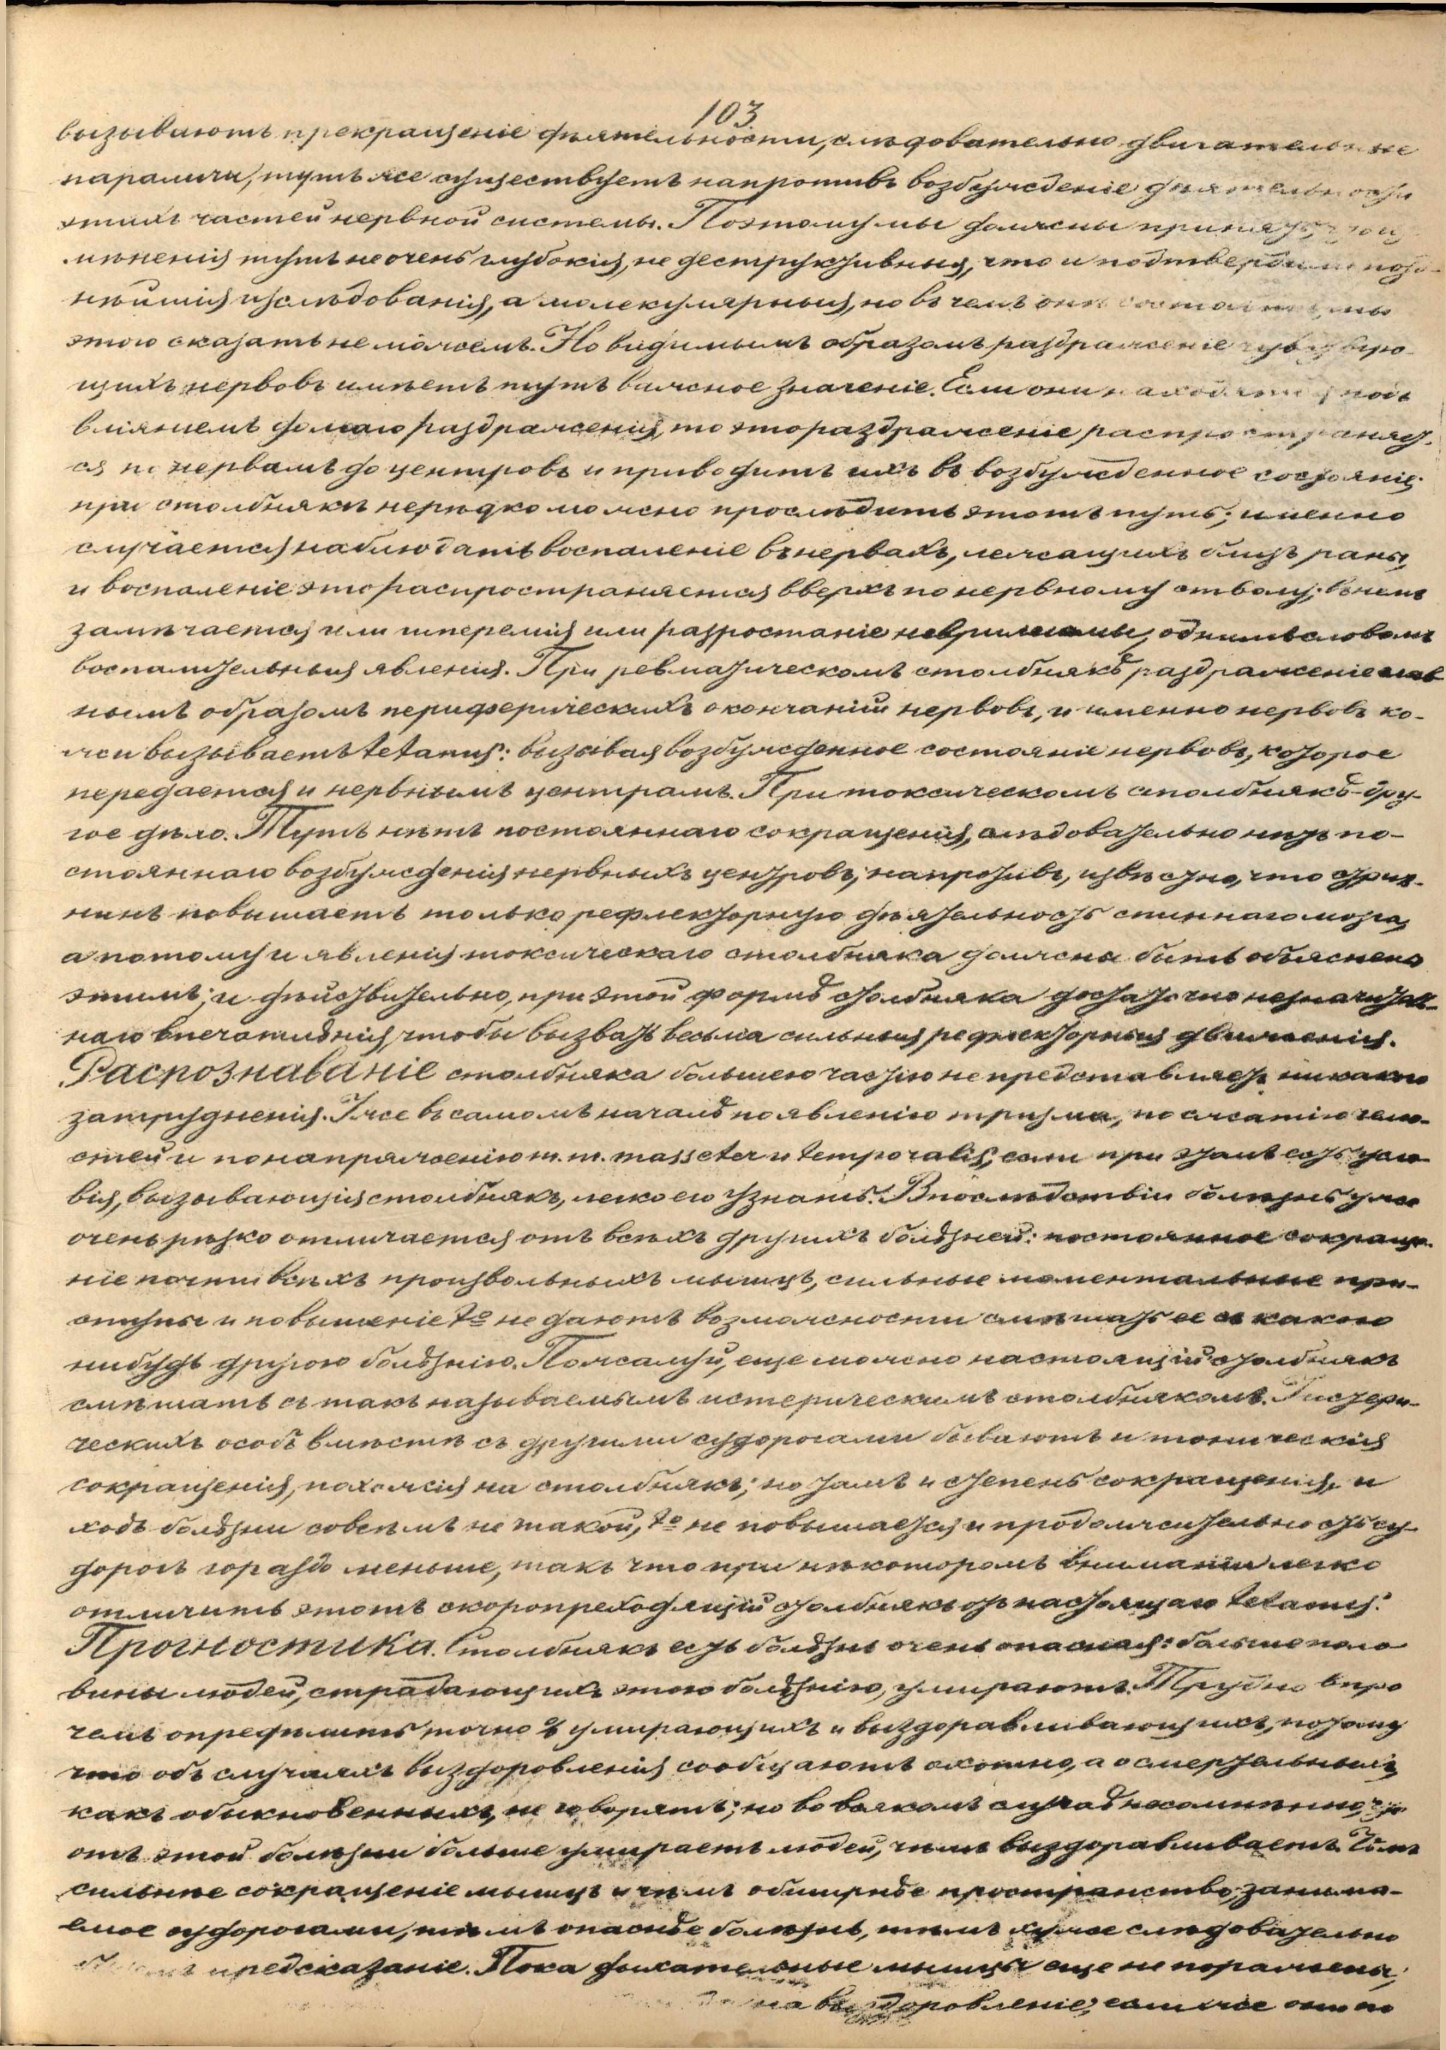 103
вызываютъ прекращеніе дѣятельности, слѣдовательно двигательные
параличи, тутъ же существуетъ напротивъ возбужденіе дѣятельности
этихъ частей нервной системы. Поэтому мы должны принять, что из
мѣненія тутъ не очень глубокія, не деструктивныя, что и подтвердили позд-
нѣйшія изслѣдованія, а молекулярныя, но въ чемъ они состоятъ, мы
этого сказать не можемъ. Но видимымъ образомъ раздраженіе чувствую-
щихъ нервовъ имѣетъ тутъ важное значеніе. Если они находятся подъ
вліяніемъ раздраженія, то это раздраженіе распространяет-
ся по нервамъ до центровъ и приводитъ ихъ въ возбужденное состояніе;
при столбнякѣ нерѣдко можно прослѣдить этотъ путь; именно
случается наблюдать воспаленіе въ нервахъ, лежащихъ близъ раны,
и воспаленіе это распространяется вверхъ по нервному стволу; въ немъ
замѣчается или гиперемія или разростаніе неврилеммы, однимъ словомъ
воспалительныя явленія. При ревматическомъ столбнякѣ раздраженіе глав
нымъ образомъ периферическихъ окончаній нервовъ, и именно нервовъ ко-
жи вызываетъ tetanus: вызывая возбужденное состояніе нервовъ, которое
передается и нервнымъ центрамъ. При токсическомъ столбнякѣ дру-
гое дѣло. Тутъ нѣтъ постояннаго сокращенія, слѣдовательно нѣтъ по-
стояннаго возбужденія нервныхъ центровъ, напротивъ, извѣстно, что стрих-
нинъ повышаетъ только рефлекторную дѣятельность спиннаго мозга,
а потому и явленія токсическаго столбняка должны быть объяснены
этимъ; и дѣйствительно, при этой формѣ столбняка достаточно незначитель-
наго впечатлѣнія, чтобы вызвать весьма сильныя рефлекторныя движенія.
Распознаваніе столбняка большею частію не представляетъ никакого
затрудненія. Уже въ самомъ началѣ по явленію тризма, по сжатію челю-
стей и по напряженію m. m. masseter и temporalis, если при этомъ есть усло
вія, вызывающія столбнякъ, легко его узнать. Впослѣдствіи болѣзнь уже
очень рѣзко отличается отъ всѣхъ другихъ болѣзней: постоянное сокраще-
ніе почти всѣхъ произвольныхъ мышцъ, сильные моментальные при-
ступы и повышеніе tº не даютъ возможности смѣшать ее съ какою
нибудь другою болѣзнію. Пожалуй, еще можно настоящій столбнякъ
смѣшать съ такъ называемымъ истерическимъ столбнякомъ. У истери-
ческихъ особъ вмѣстѣ съ другими судорогами бываютъ и тоническія
сокращенія, похожія на столбнякъ; но тамъ и степень сокращенія, и
ходъ болѣзни совсѣмъ не такой, tº не повышается и продолжительность су-
дорогъ гораздо меньше, такъ что при нѣкоторомъ вниманіи легко
отличить этотъ скоропреходящій столбнякъ отъ настоящаго tetanus.
Прогностика. Столбнякъ есть болѣзнь очень опасная: больше поло
вины людей, страдающихъ этою болѣзнію, умираютъ. Трудно впро
чемъ опредѣлить точно % умирающихъ и выздоравливающихъ, потому
что объ случаяхъ выздоровленія сообщаютъ охотно, а о смертельныхъ,
какъ обыкновенныхъ, не говорятъ; но во всякомъ случаѣ несомнѣнно, что
отъ этой болѣзни больше умираетъ людей, чѣмъ выздоравливаетъ. Чѣмъ
сильнѣе сокращеніе мышцъ и чѣмъ обширнѣе пространство, занима-
емое судорогами, тѣмъ опаснѣе болѣзнь, тѣмъ хуже слѣдовательно
предсказаніе. Пока дыхательныя мышцы еще не поражены,
на выздоровленіе; если же они по